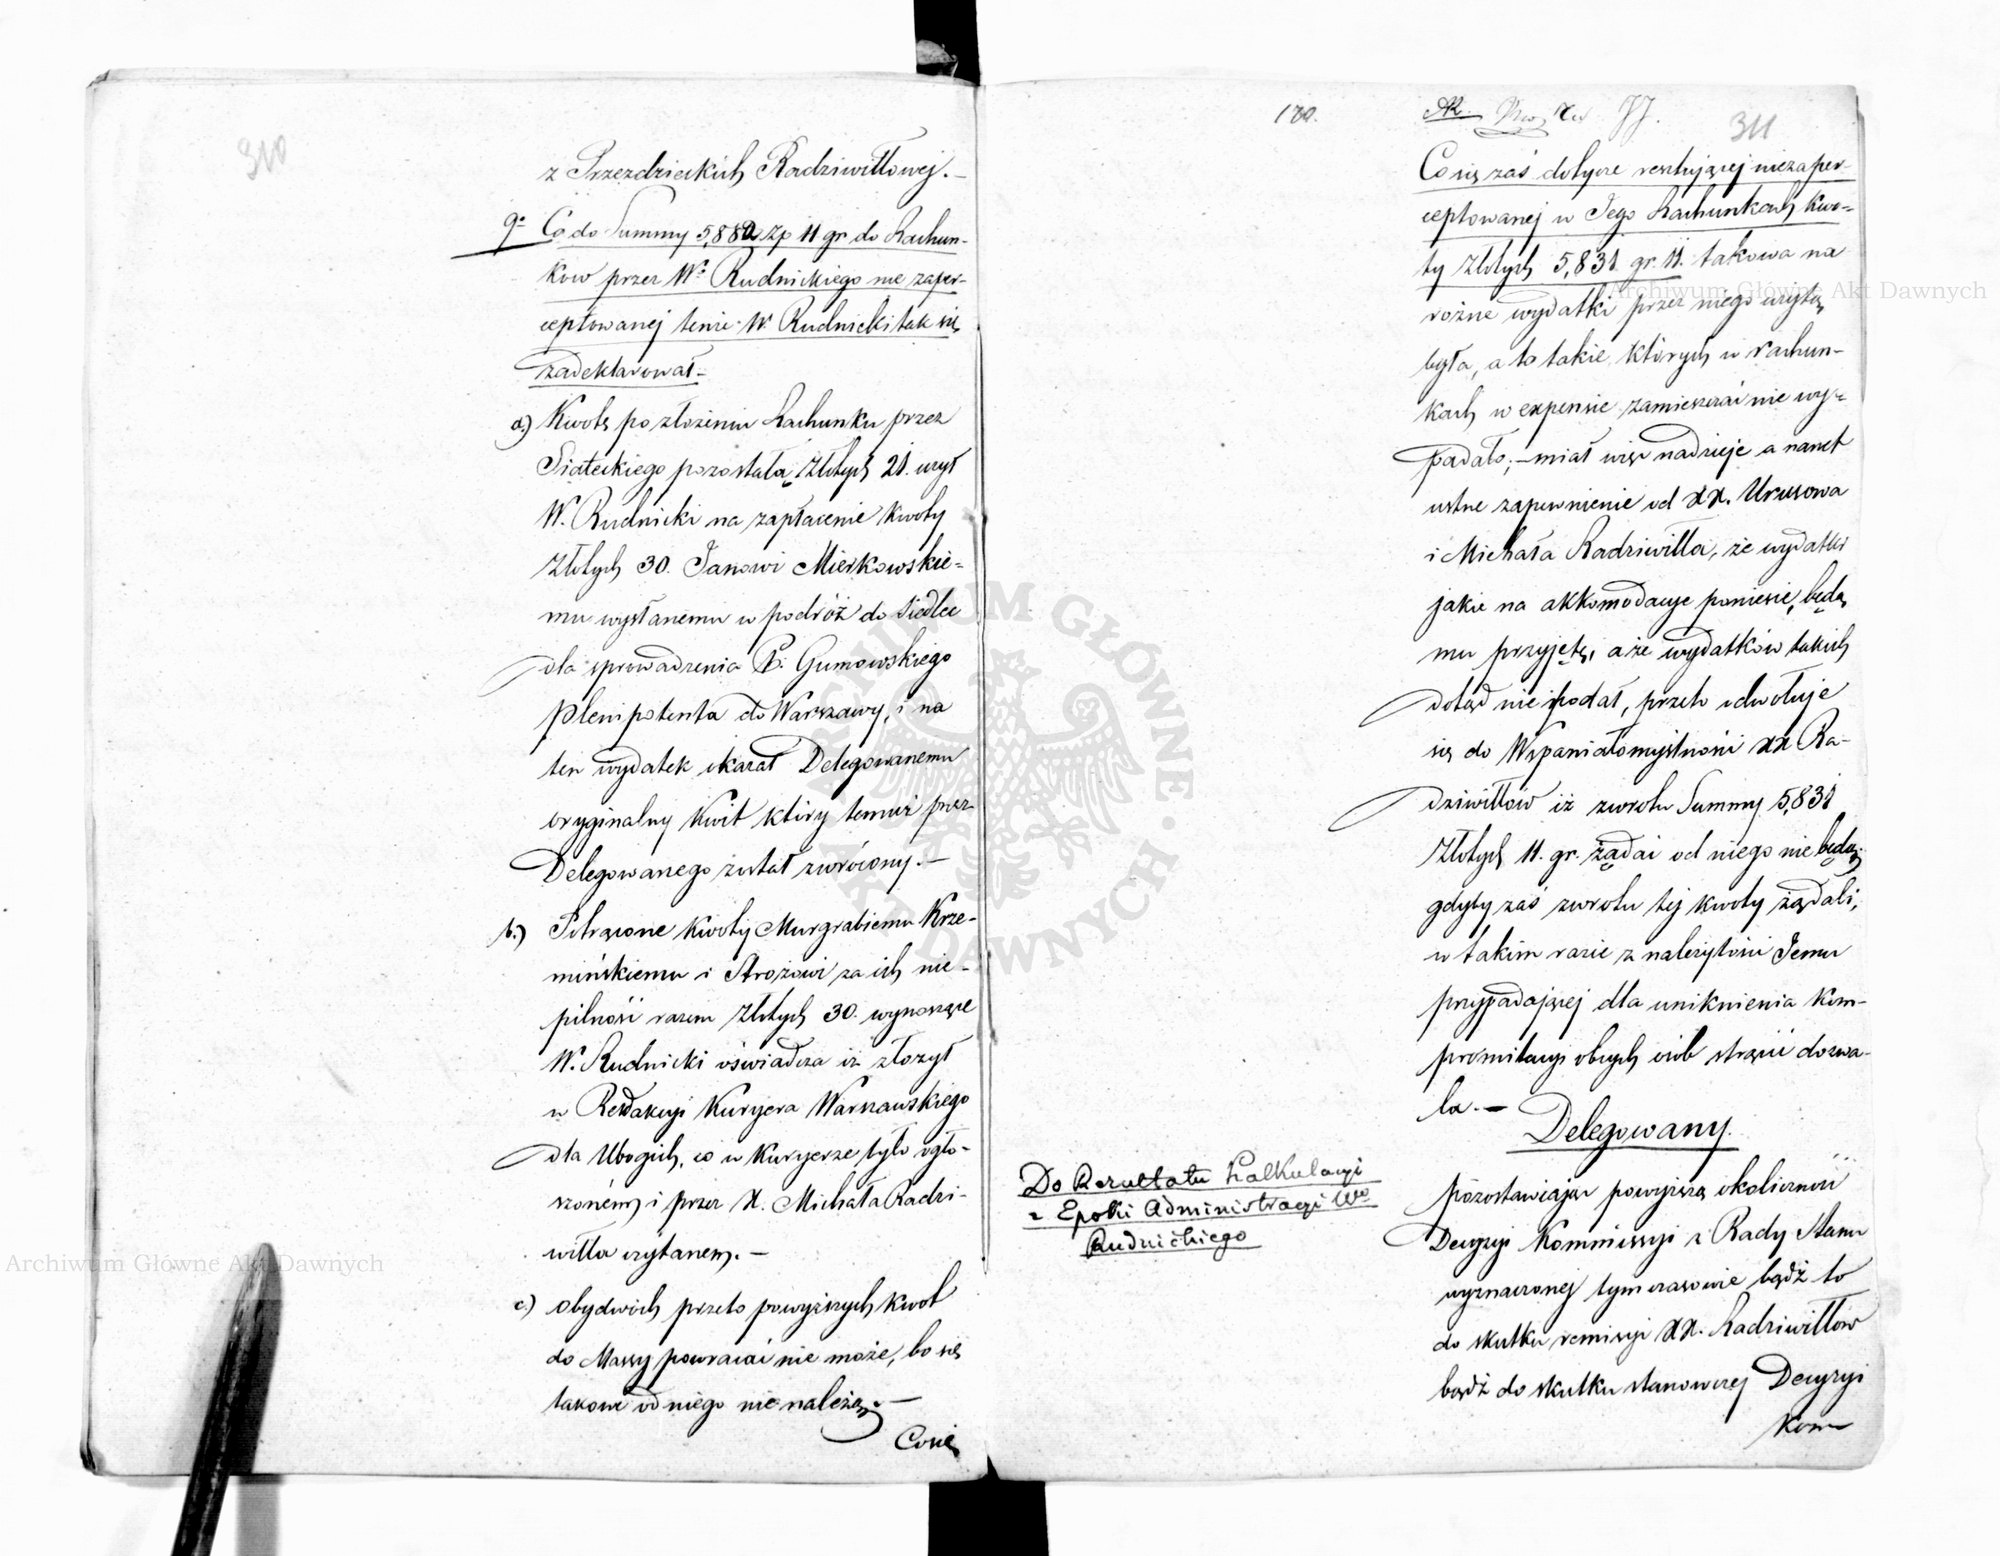 310
z Przezdzieckich Radziwiłłowej.–
9º Co do Summy 5,882 Zp 11 gr do Rachun-
kow przez Wº Rudnickiego nie zaper-
ceptowanej tenże W. Rudnicki tak się
zadeklarował–
a) Kwotę po złożeniu Rachunku przez
Siateckiego pozostałą Złotych 21. użył
W. Rudnicki na zapłacenie Kwoty
Złotych 30. Janowi Mierkowskie=
mu wysłanemu w podróż do Siedlec
dla sprowadzenia P. Gumowskiego
Plenipotenta do Warszawy, i na
ten wydatek okazał Delegowanemu
oryginalny Kwit który temuż przez
Delegowanego został zwrócony.–
b.) Potrącone Kwoty Murgrabiemu Krze-
mińskiemu i Strożowi za ich nie-
pilność razem Złotych 30. wynoszące
W. Rudnicki oświadcza iż złożył
w Redakcyi Kuryera Warszawskiego
dla Ubogich, co w Kuryerze było ogło-
szoném i przez X. Michała Radzi-
wiłła czytanem.–
c.) obydwóch przeto powyższych Kwot
do Massy powracać nie może, bo się
takowe od niego nie należą.–
Co się
180.
311
Co się zaś dotycze resztującej niezaper-
ceptowanej w Jego Rachunkach Kwo=
ty Złotych 5,831 gr. 11. takowa na
rożne wydatki przez niego użytą
była, a to takie, których w rachun-
kach w expensie zamieszczać nie wy=
padało;– miał więc nadzieje a nawet
ustne zapewnienie od XX. Uruskiego
i Michała Radziwiłła, że wydatki
jakie na akkomodacye poniesie, będą
mu przyjęte, a że wydatków takich
dotąd nie podał, przeto odwołuje
się do Wspaniałomyślności XX Ra-
dziwiłłów iż zwrotu Summy 5,831
Złotych 11. gr. żądać od niego nie będą;
gdyby zaś zwrotu tej kwoty żądali,
w takim razie z należytości Jemu
przypadającej dla uniknienia Kom-
promitacyi obcych osób strącić dozwa-
la.–
Delegowany.
Do Rezultatu Kalkulacyi
z Epoki Administracyi Wo
Rudnickiego
pozostawiając powyższą okoliczność
Decyzyi Kommissyi z Rady Stanu
wyznaczonej tymczasowie bądź to
do skutku remissyi XX. Radziwiłłów
bądź do skutku stanowczej Decyzyi
Kom–
Archiwum Główne Akt Dawnych
Archiwum Główne Akt Dawnych
ARCHIWUM GŁÓWNE AKT DAWNYCH